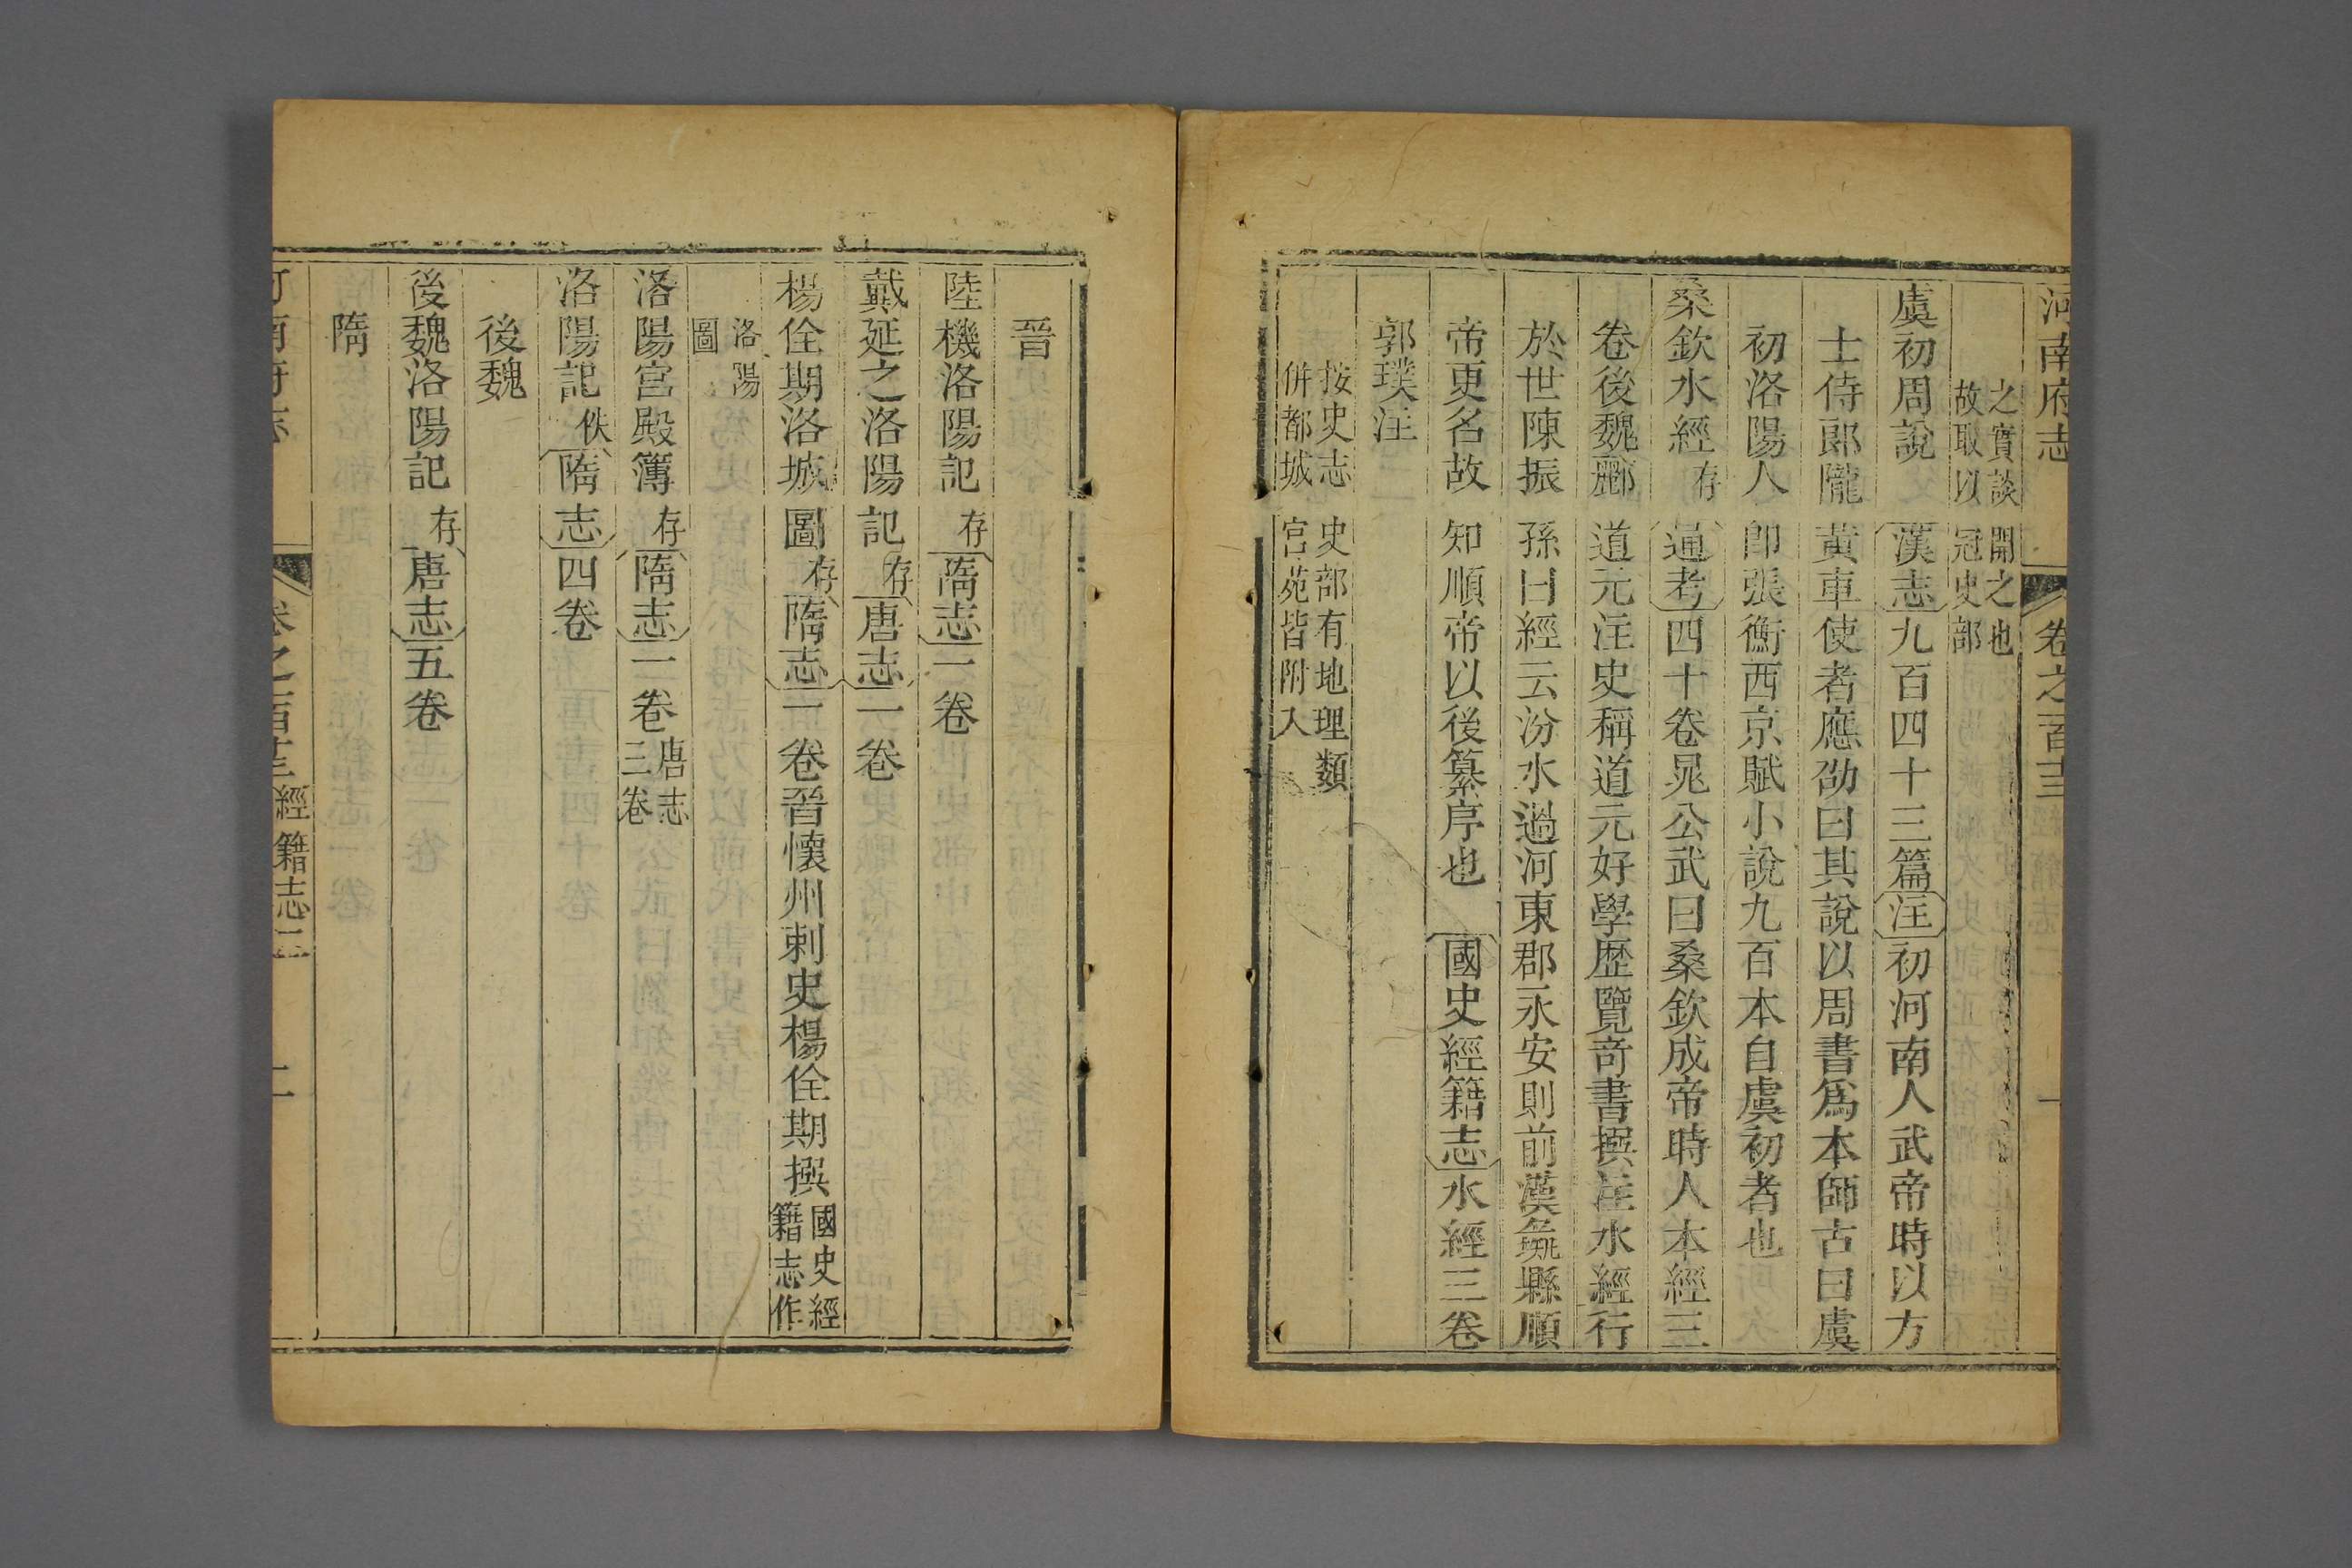 河南府志 卷之百十三 一
之實談開之也
故取以冠史部
虞初周說漢志九百四十三篇注初河南人武帝時以方
士侍郎隴黃車使者應劭曰其說以周書爲本師古曰虞
初洛陽人卽張衡西京賦小說九百本自虞初者也
桑欽水經存通考四十卷晁公武曰桑欽成帝時人本經三
卷後魏酈道元注史稱道元好學歷覽奇書撰注水經行
於世陳振孫曰經云汾水過河東郡永安則前漢彘縣順
帝更名故知順帝以後纂序也 國史經籍志水經三卷
郭璞注
按史志史部有地理類
併都城宮苑皆附入
晉
陸機洛陽記存隋志一卷
戴延之洛陽記存唐志一卷
楊佺期洛城圖存隋志一卷晉懷州刺史楊佺期撰國史經
籍志作
洛陽
圖
洛陽宮殿簿存隋志一卷唐志
三卷
洛陽記佚隋志四卷
後魏
後魏洛陽記存唐志五卷
隋
河南府志 卷之百十三經籍志二 二